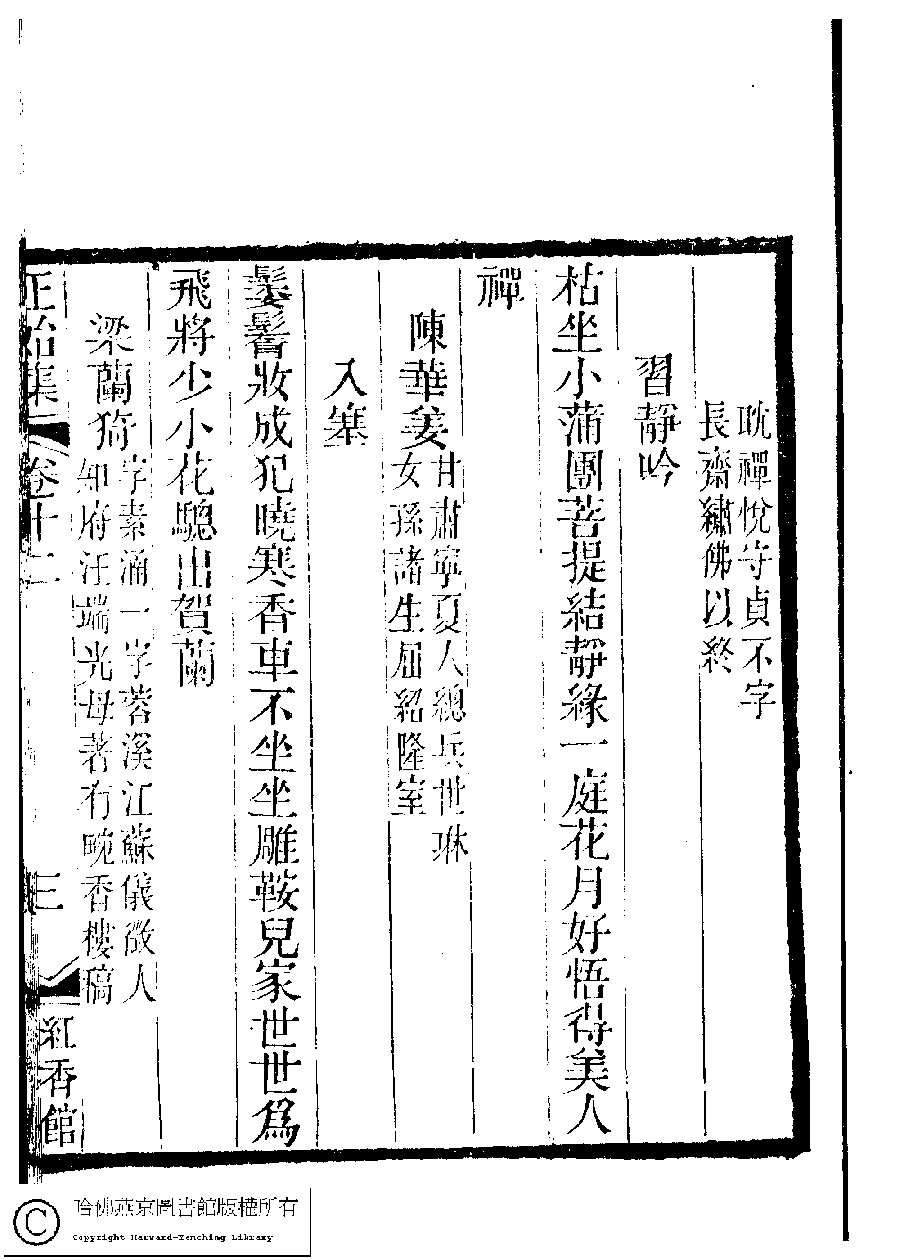 耽禪悅守貞不字
長齋繡佛以終
習靜吟
枯坐小蒲團菩提結靜緣一庭花月好悟得美人
禪
陳華姜
甘肅寧夏人總兵世琳
女孫諸生屈紹隆室
入塞
鬘髻妝成犯曉寒香車不坐坐雕鞍兒家世世爲
飛將少小花驄出賀蘭
梁蘭猗
字素涌一字蓉溪江蘇儀徵人
知府汪端光母著有畹香樓稿
正始集 卷十二 三 紅香館
哈佛燕京圖書館版權所有
Copyright Harvard-Yenching Library